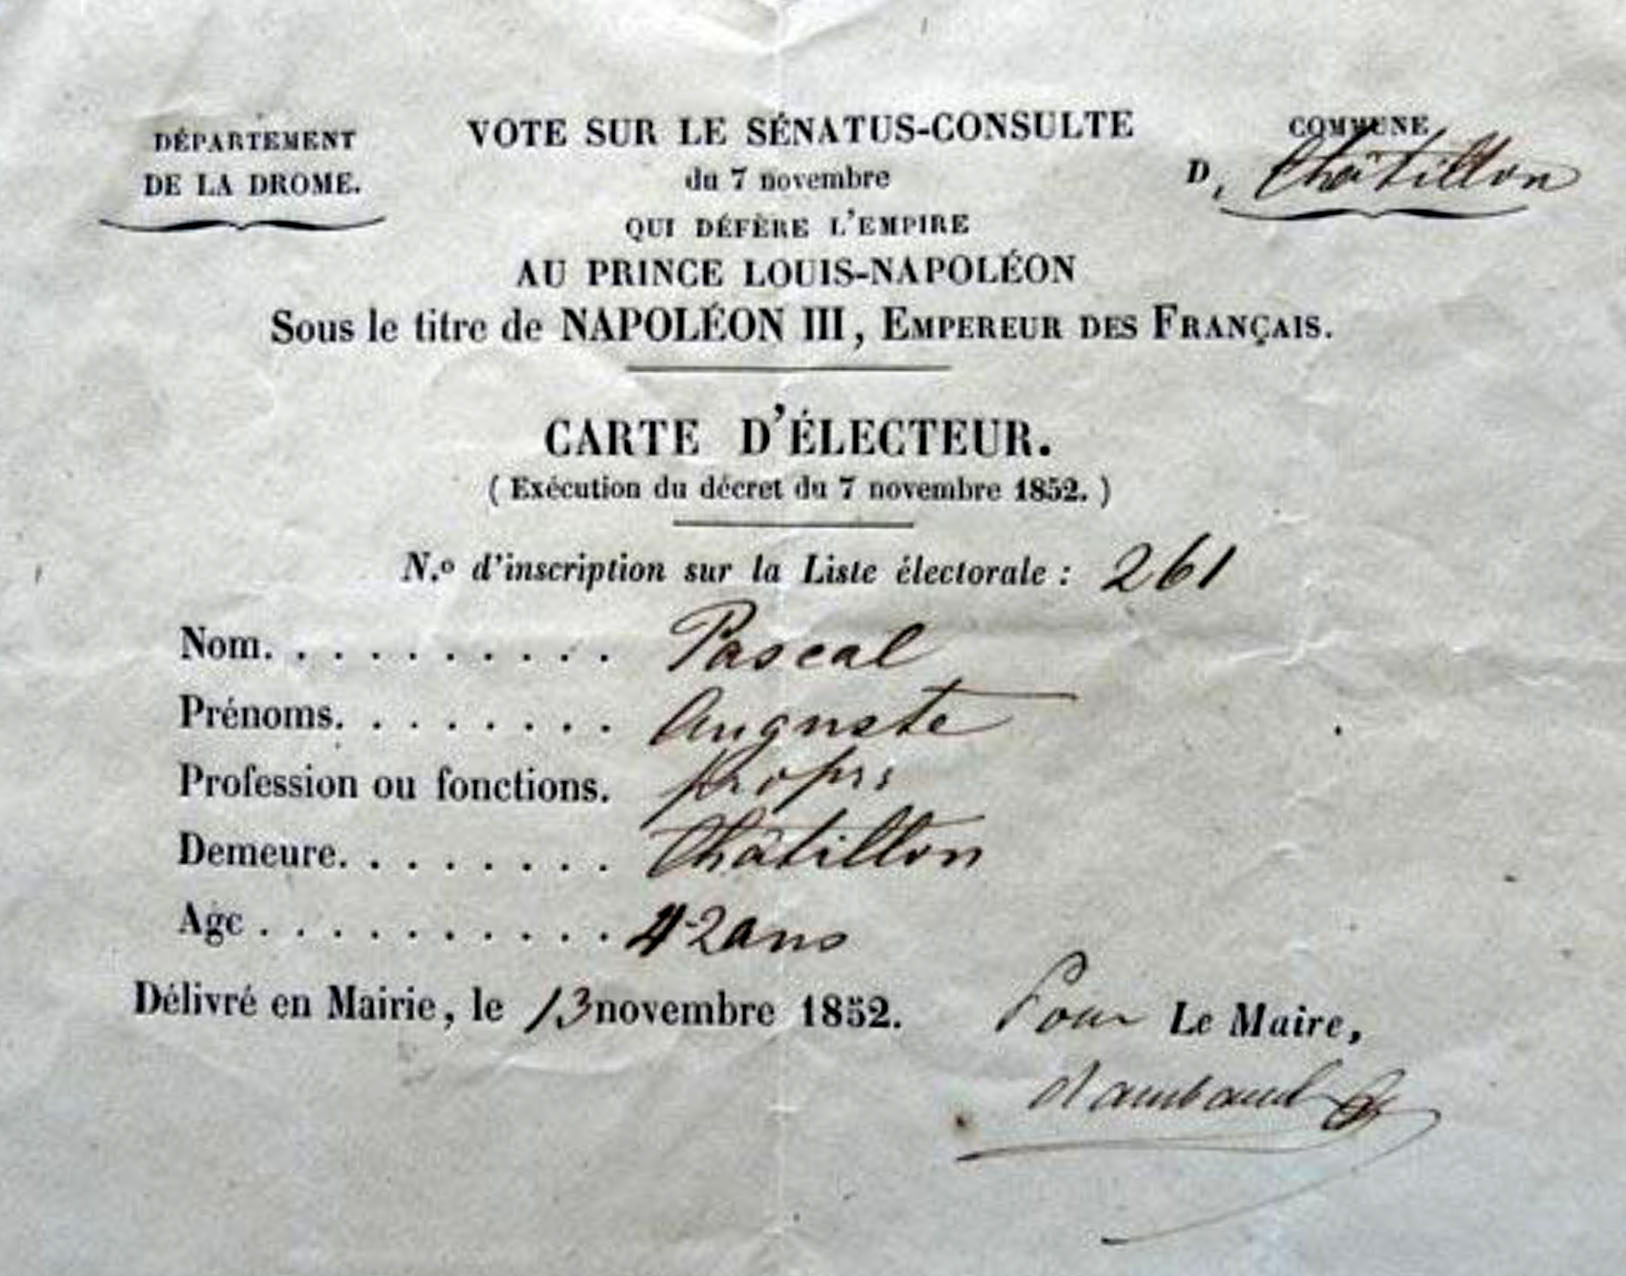 DÉPARTEMENT
DE LA DROME.
VOTE SUR LE SÉNATUS-CONSULTE
du 7 novembre
QUI DÉFÈRE L'EMPIRE
AU PRINCE LOUIS-NAPOLÉON
Sous le titre de NAPOLÉON III, EMPEREUR DES FRANÇAIS.
COMMUNE
D, Châtillon
CARTE D'ÉLECTEUR.
( Exécution du décret du 7 novembre 1852. )
N.o d'inscription sur la Liste électorale : 261
Nom. . . . . . . . . . Pascal
Prénoms. . . . . . . . Auguste
Profession ou fonctions. propre
Demeure. . . . . . . . Châtillon
Age . . . . . . . . . . 42 ans
Délivré en Mairie, le 13 novembre 1852.
Pour Le Maire,